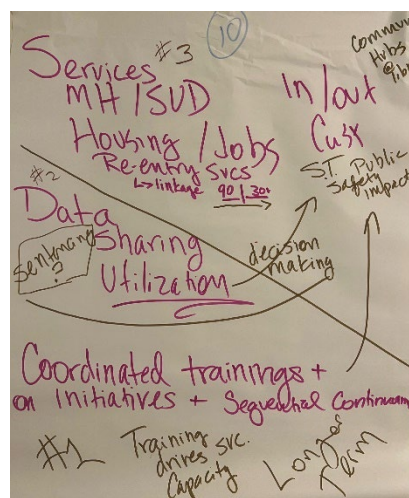 10
#3
Services
MH/SUD
Housing / Jobs
Re-entry Svcs
↳ linkage 90 / 30
In/out
Cust
S.T. Public
Safety
Impact
Hubs
@
#2
Data
Sharing
Utilization
Sentencing
?
decision
making
Coordinated trainings +
on Initiatives + Sequential Continuum
#1
Training
drives svc.
Capacity
Longer
Term